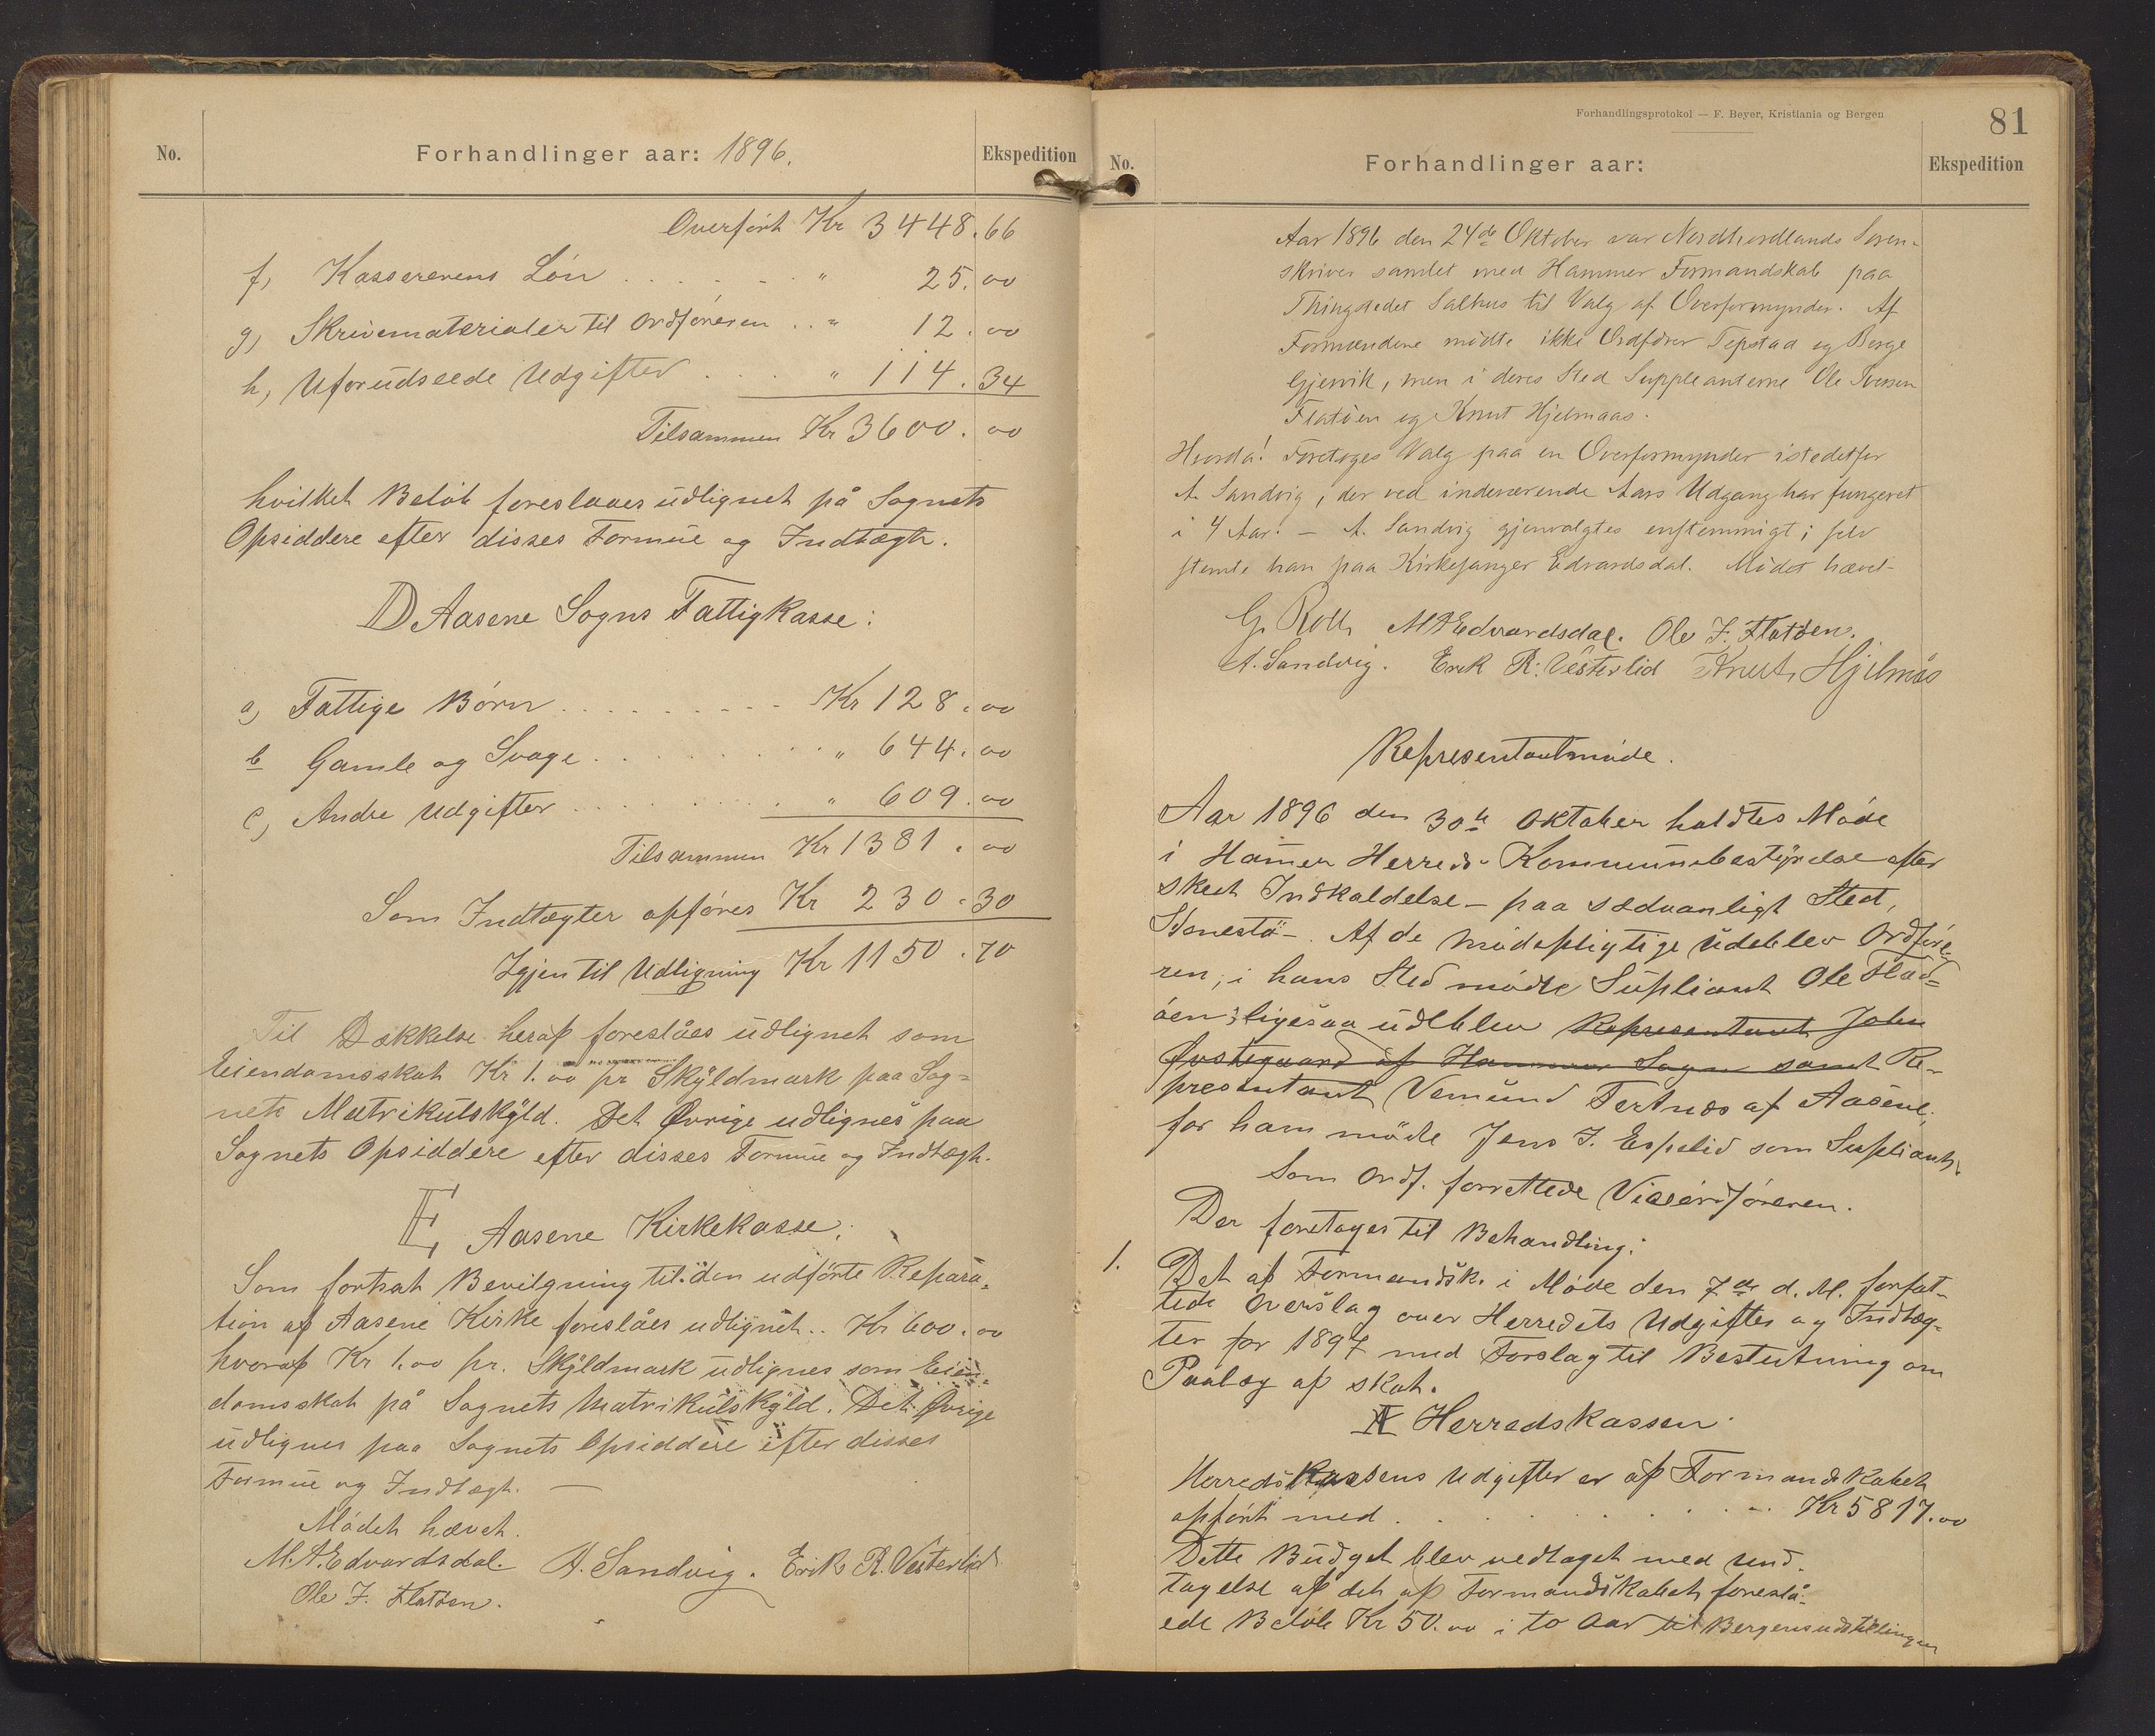 No.
Forhandlinger aar: 1896.
Ekspedition
Overført Kr 3448.66
f, Kassererens Løn . . . . . . " 25.00
g, Skrivematerialer til Ordføreren . . " 12.00
h, Uforudseede Udgifter . . . . " 114.34
Tilsammen Kr 3600.00
hvilket Beløb foreslaaes udlignet på Sognets
Opsiddere efter disses Formue og Indtægt.
D Aasene Sogns Fattigkasse:
a, Fattige Børn . . . . . . . . . Kr 128.00
b Gamle og Svage . . . . . . . . " 644.00
c, Andre Udgifter . . . . . . . . " 609.00
Tilsammen Kr 1381.00
Som Indtægter opføres Kr 230.30
Igjen til Udligning Kr 1150.70
Til Dækkelse heraf foreslåes udlignet som
Eiendomsskat Kr 1.00 pr Skyldmark paa Sog=
nets Matrikulskyld. Det Øvrige udlignes paa
Sognets Opsiddere efter disses Formue og Indtægt.
E Aasene Kirkekasse.
Som fortsat Bevilgning til den udførte Repara=
tion af Aasene Kirke foreslåes udlignet . . Kr 600.00
hvoraf Kr 1.00 pr. Skyldmark udlignes som Eien=
domsskat på Sognets Matrikulskyld. Det Øvrige
udlignes paa Sognets Opsiddere efter disses
Formue og Indtægt. —
Mødet hævet.
M. A. Edvardsdal. A. Sandvig. Erik R. Vesterlid
Ole J. Flatøen.
Forhandlingsprotokol — F. Beyer, Kristiania og Bergen
81
No.
Forhandlinger aar:
Ekspedition
Aar 1896 den 24de Oktober var Nordhordlands Soren-
skriver samlet med Hammer Formandskab paa
Thingstedet Salhus til Valg af Overformynder. Af
Formændene mødte ikke Ordfører Tepstad og Berge
Gjervik, men i deres Sted Suppleanterne Ole Iversen
Flatøen og Knut Hjelmaas.
Hvorda! Foretoges Valg paa en Overformynder istedetfor
A. Sandvig, der ved indeværende Aars Udgang har fungeret
i 4 Aar. — A. Sandvig gjenvalgtes enstemmigt; selv
stemte han paa Kirkesanger Edvardsdal. Mødet hævet-
G. Roll M A Edvardsdal. Ole J. Flatøen.
A. Sandvig. Erik R. Vesterlid Knut Hjelmås
Representantmøde.
Aar 1896 den 30te Oktober holdtes Møde
i Hamer Herreds-Kommunebestyrelse efter
skeet Indkaldelse – paa sædvanligt Sted,
Steinestø –. Af de mødepligtige udeblev Ordføre=
ren, i hans Sted mødte Supliant Ole Flad=
øen; ligesaa udeblev Representant John
Øvstegaard af Hammer Sogn samt Re-
presentant Vemund Tertnes af Aasene;
for ham møde Jens J. Espelid som Supliant.
Som Ordf. forrettede Viceordføreren.
Der foretages til Behandling:
1. Det af Formandsk. i Møde den 7de d. M. forfat-
tede Overslag over Herredets Udgifter og Indtæg-
ter for 1897 med Forslag til Beslutning om
Paalæg af skat.
A Herredskassen.
Herredskassens Udgifter er af Formandskabet
opført med . . . . . . . . . Kr 5817.00
Dette Budget blev vedtaget med und-
tagelse af det af Formandskabet foreslå-
ede Beløb Kr 50.00 i to Aar til Bergensudstillingen